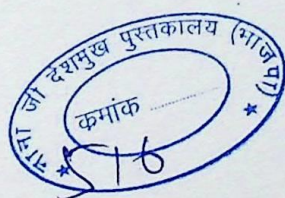 नाना जी देशमुख पुस्तकालय (भाजपा)
कमांक ..........
516